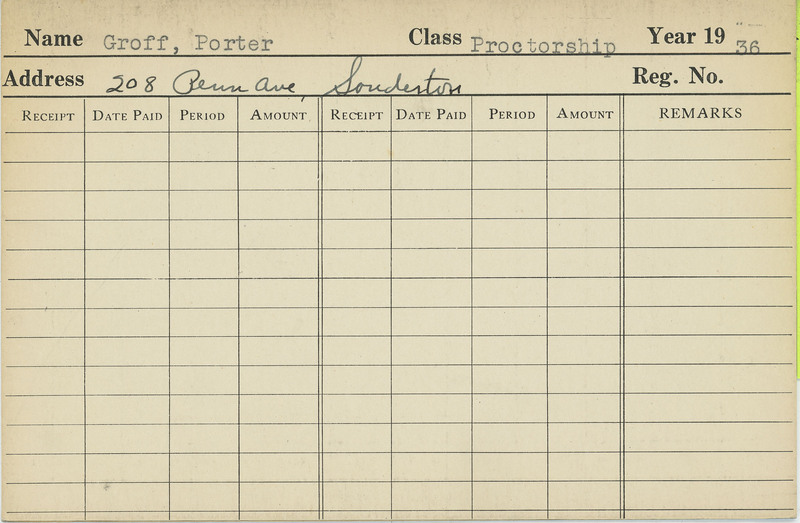 Name Groff, Porter Class Proctorship Year 19 36
Address 208 Penn Ave, Souderton Reg. No.
RECEIPT DATE PAID PERIOD AMOUNT RECEIPT DATE PAID PERIOD AMOUNT REMARKS